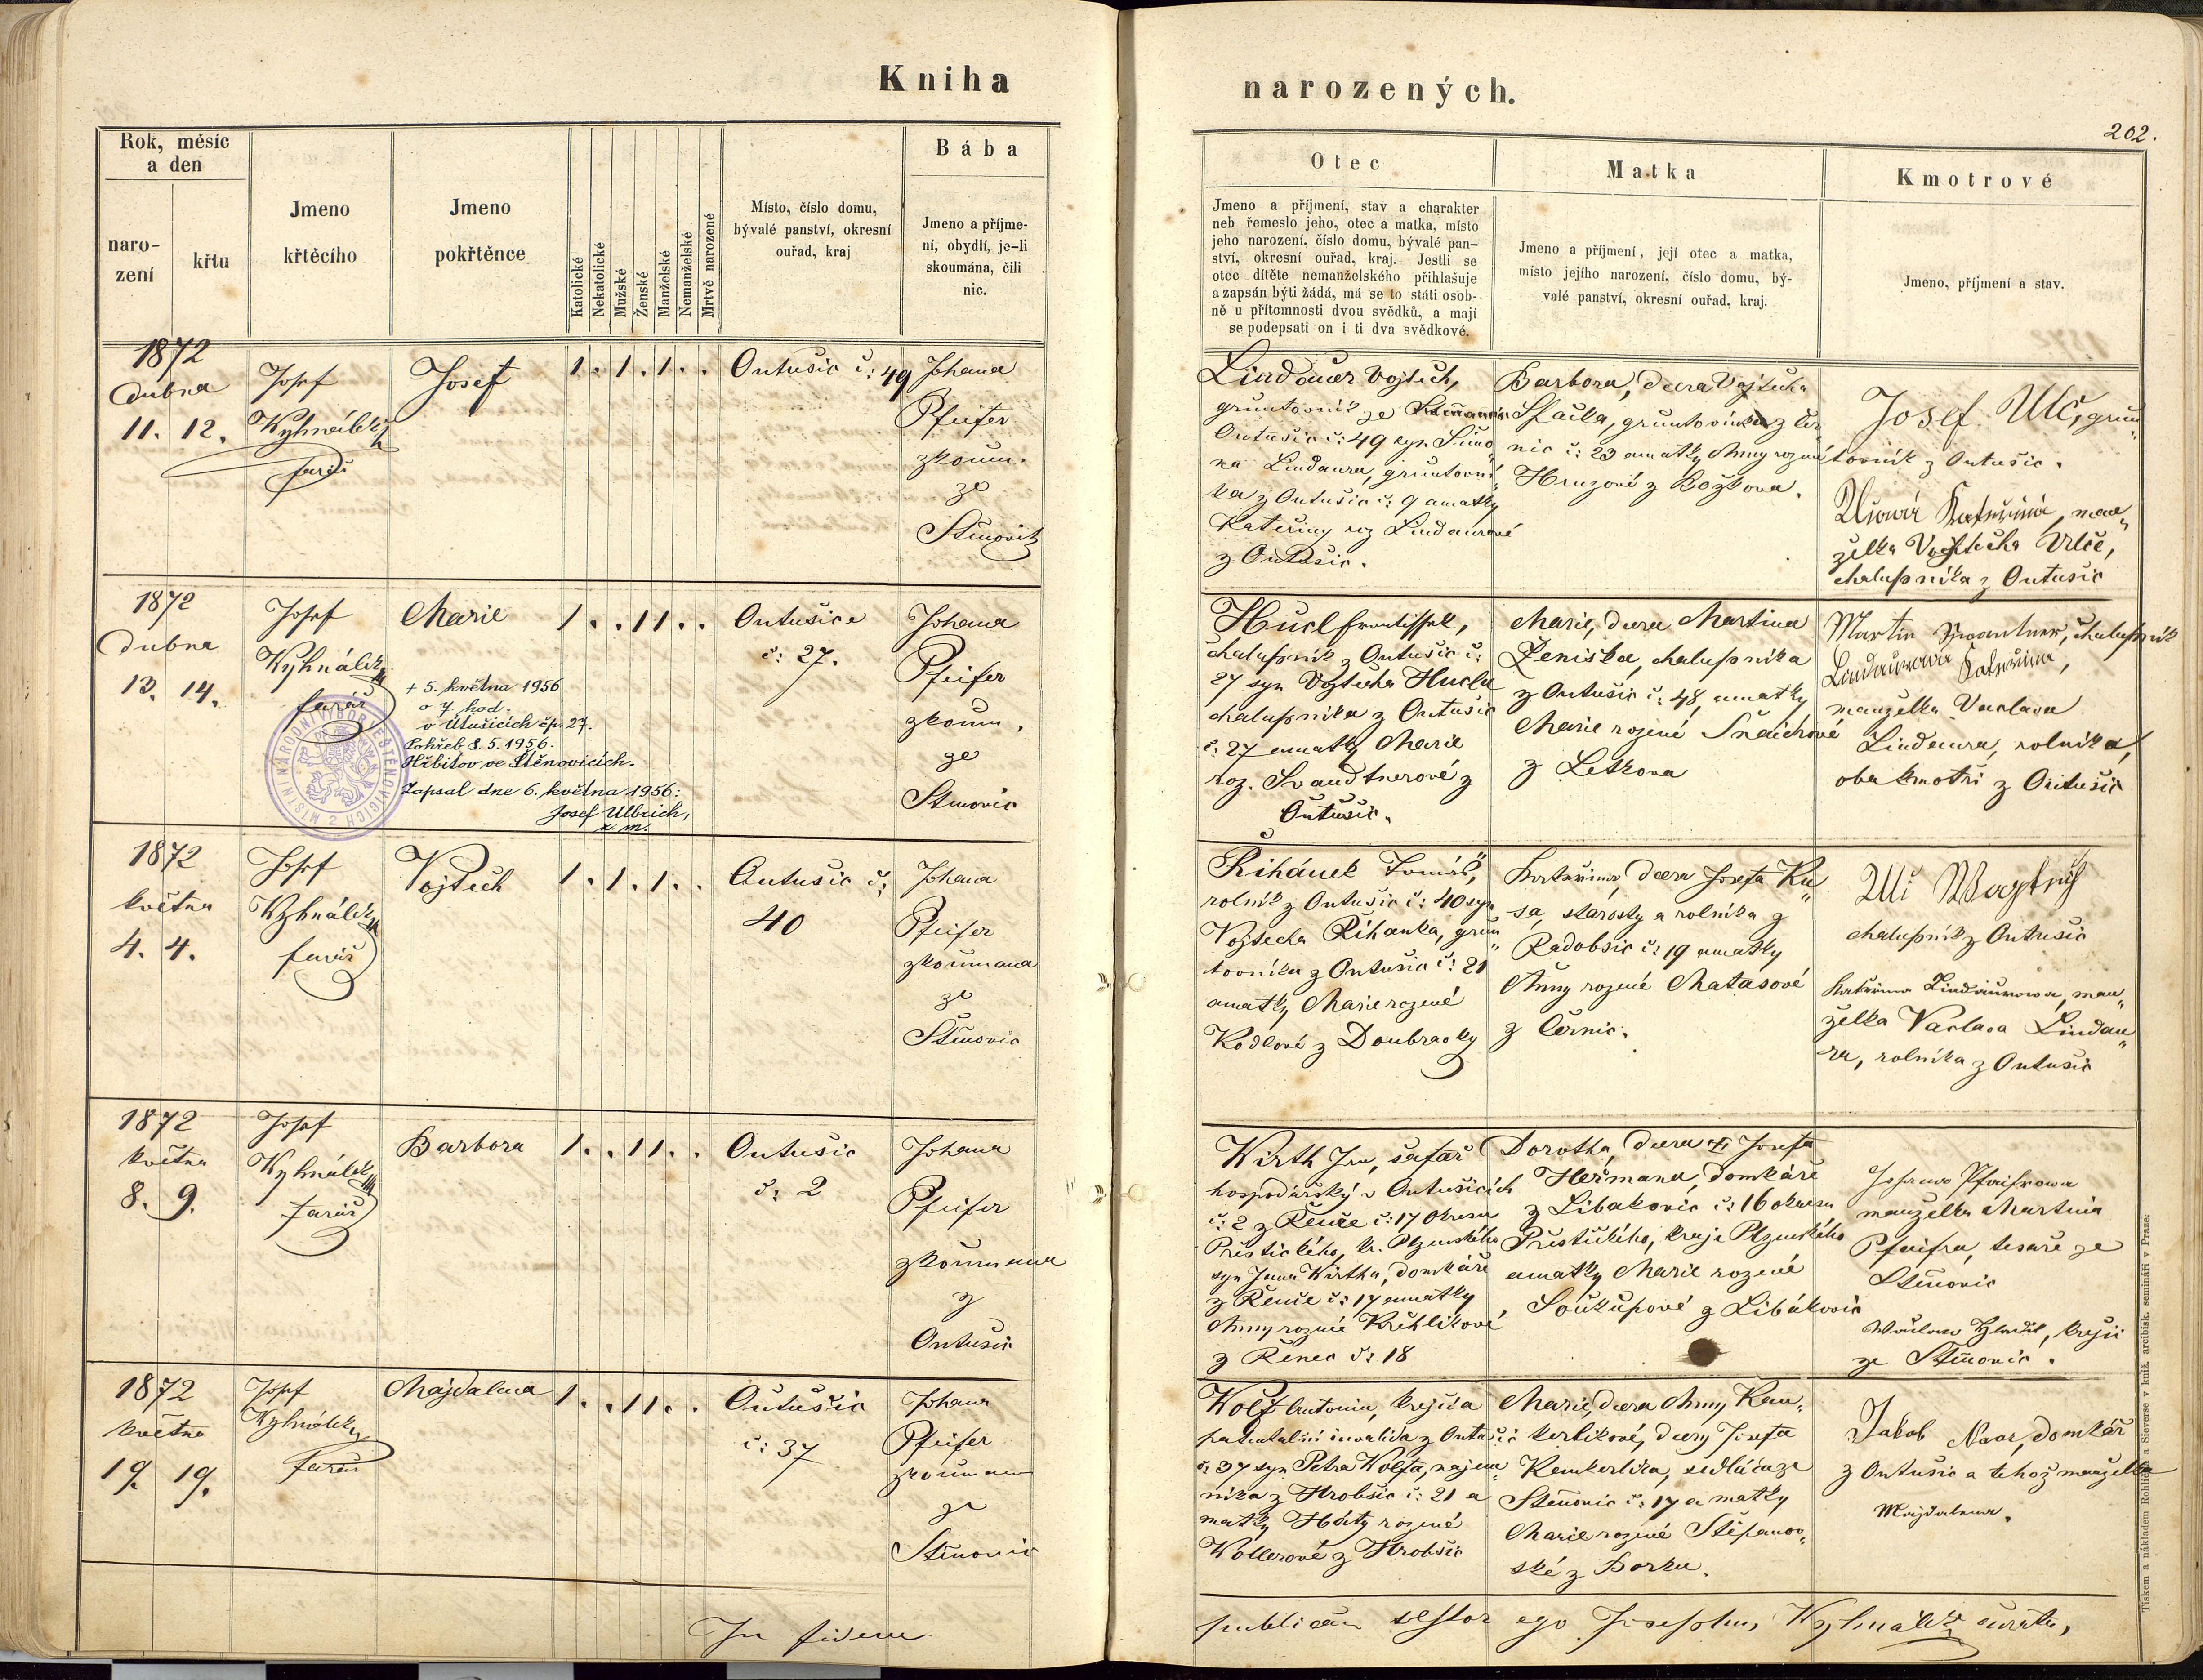 Kniha
narozených.
202.
Rok, měsíc
a den
naro-
zení
křtu
Jmeno
křtěcího
Jmeno
pokřtěnce
Katolické
Nekatolické
Mužské
Ženské
Manželské
Nemanželské
Mrtvě narozené
Místo, číslo domu,
bývalé panství, okresní
ouřad, kraj
Bába
Jmeno a příjme-
ní, obydlí, je-li
skoumána, čili
nic.
Otec
Jmeno a příjmení, stav a charakter
neb řemeslo jeho, otec a matka, místo
jeho narození, číslo domu, bývalé pan-
ství, okresní ouřad, kraj. Jestli se
otec dítěte nemanželského přihlašuje
a zapsán býti žádá, má se to státi osob-
ně u přítomnosti dvou svědků, a mají
se podepsati on i ti dva svědkové.
Matka
Jmeno a příjmení, její otec a matka,
místo jejího narození, číslo domu, bý-
valé panství, okresní ouřad, kraj.
Kmotrové
Jmeno, příjmení a stav.
1872
dubna
11. 12.
Josef
Kyhnálek
farář
Josef
1 . 1 . 1 . .
Outušic č: 49
Johana
Pfeifer
zkoum.
ze
Štěnovic
Lindauer Vojtěch,
gruntovník ze
Outušic č: 49 syn Šimo„
na Lindaura, gruntovní„
ka z Outušic č: 9 a matky
Kateřiny roz Lindaurové
z Outušic.
Barbora, dcera Vojtěcha
gruntovníka z Čer„
nic č: 23 a matky Anny rozené
Hruzové z Božkova.
Josef Ulč, grun„
tovník z Outušic.
Ulčová Kateřina, man„
želka Vojtěcha Ulče,
chalupníka z Outušic
1872
dubna
13. 14.
Josef
Kyhnálek
farář
Marie
1 . . 1 1 . .
Outušice
č: 27.
Johana
Pfeifer
zkoum.
ze
Štěnovic
+ 5. května 1956
o 7. hod.
v Útušicích čp. 27.
Pohřeb 8. 5. 1956.
Hřbitov ve Štěnovicích.
Zapsal dne 6. května 1956:
Josef Ulbrich,
MÍSTNÍ NÁRODNÍ VÝBOR VE ŠTĚNOVICÍCH 2
Hucl František,
chalupník z Outušic č:
27 syn Vojtěcha Hucla
chalupníka z Outušic
č: 27 a matky Marie
roz. Švandtnerové z
Outušic.
Marie, dcera Martina
Ženíška, chalupníka
z Outušic č: 48, a matky
Marie rozené Šnaichrové
z Letkova
Martin Švantner, chalupník
Lindaurová Kateřina,
manželka Vaclava
Lindaura, rolníka,
oba kmotři z Outušic
1872
května
4. 4.
Josef
Kyhnálek
farář
Vojtěch
1 . 1 . 1 . .
Outušic č:
40
Johana
Pfeifer
zkoumana
ze
Štěnovic
Řihánek Tomáš,
rolník z Outušic č: 40 syn
Vojtěcha Řihanka, grun„
tovníka z Outušic č: 21
a matky Marie rozené
Kodlové z Doubravky
Kateřina, dcera Josefa Ku„
sa, starosty a rolníka z
Radobčic č: 19 a matky
Anny rozené Matasové
z Černic.
Ulč
chalupník z Outušic
Kateřina Lindaurowa, man„
želka Vaclava Lindau„
ra, rolníka z Outušic
1872
května
8. 9.
Josef
Kyhnálek
farář
Barbora
1 . . 1 1 . .
Outušic
č: 2
Johana
Pfeifer
zkoumana
z
Outušic
Wirth Jan, šafář
hospodářský v Outušicích
č: 2 z Řenče č: 17 okresu
Přestického, kr. Plzenského
syn Jana Wirtha, domkáře
z Řenče č: 17 a matky
Anny rozené Křehlikové,
z Řenec č: 18
Dorotha, dcera Josefa
Heřmana, domkáře
z Libakovic č: 16 okresu
Přestického, kraje Plzenského
a matky Marie rozené
Soukupové z Libákovic
Johana Pfeifrowa
manželka Martina
Pfeifra, tesaře ze
Štěnovic
krejčí
ze Štěnovic.
1872
května
19. 19.
Josef
Kyhnálek
farář
Majdalena
1 . . 1 1 . .
Outušic
č: 37
Johana
Pfeifer
zkoumana
ze
Štěnovic
Wolf Antonin, krejčí a
patentalní invalida z Outušic
č: 37 syn Petra Wolfa, najem„
níka z Hrobčic č: 21 a
matky Háty rozené
Wollerové z Hrobčic
Marie, dcera Anny Kem„
kerlikové, dcery Josefa
Kemkerlika, sedláka ze
Štěnovic č: 17 a matky
Marie rozené Štěpanov„
ské z Borku.
Jakob Naar, domkář
z Outušic a tehož manželka
Majdalena.
In fidem
publicam testor ego Josephus Kyhnálek curatus,
Tiskem a nákladem Rohlíčka a Sieverse v kníž. arcibisk. semináři v Praze.